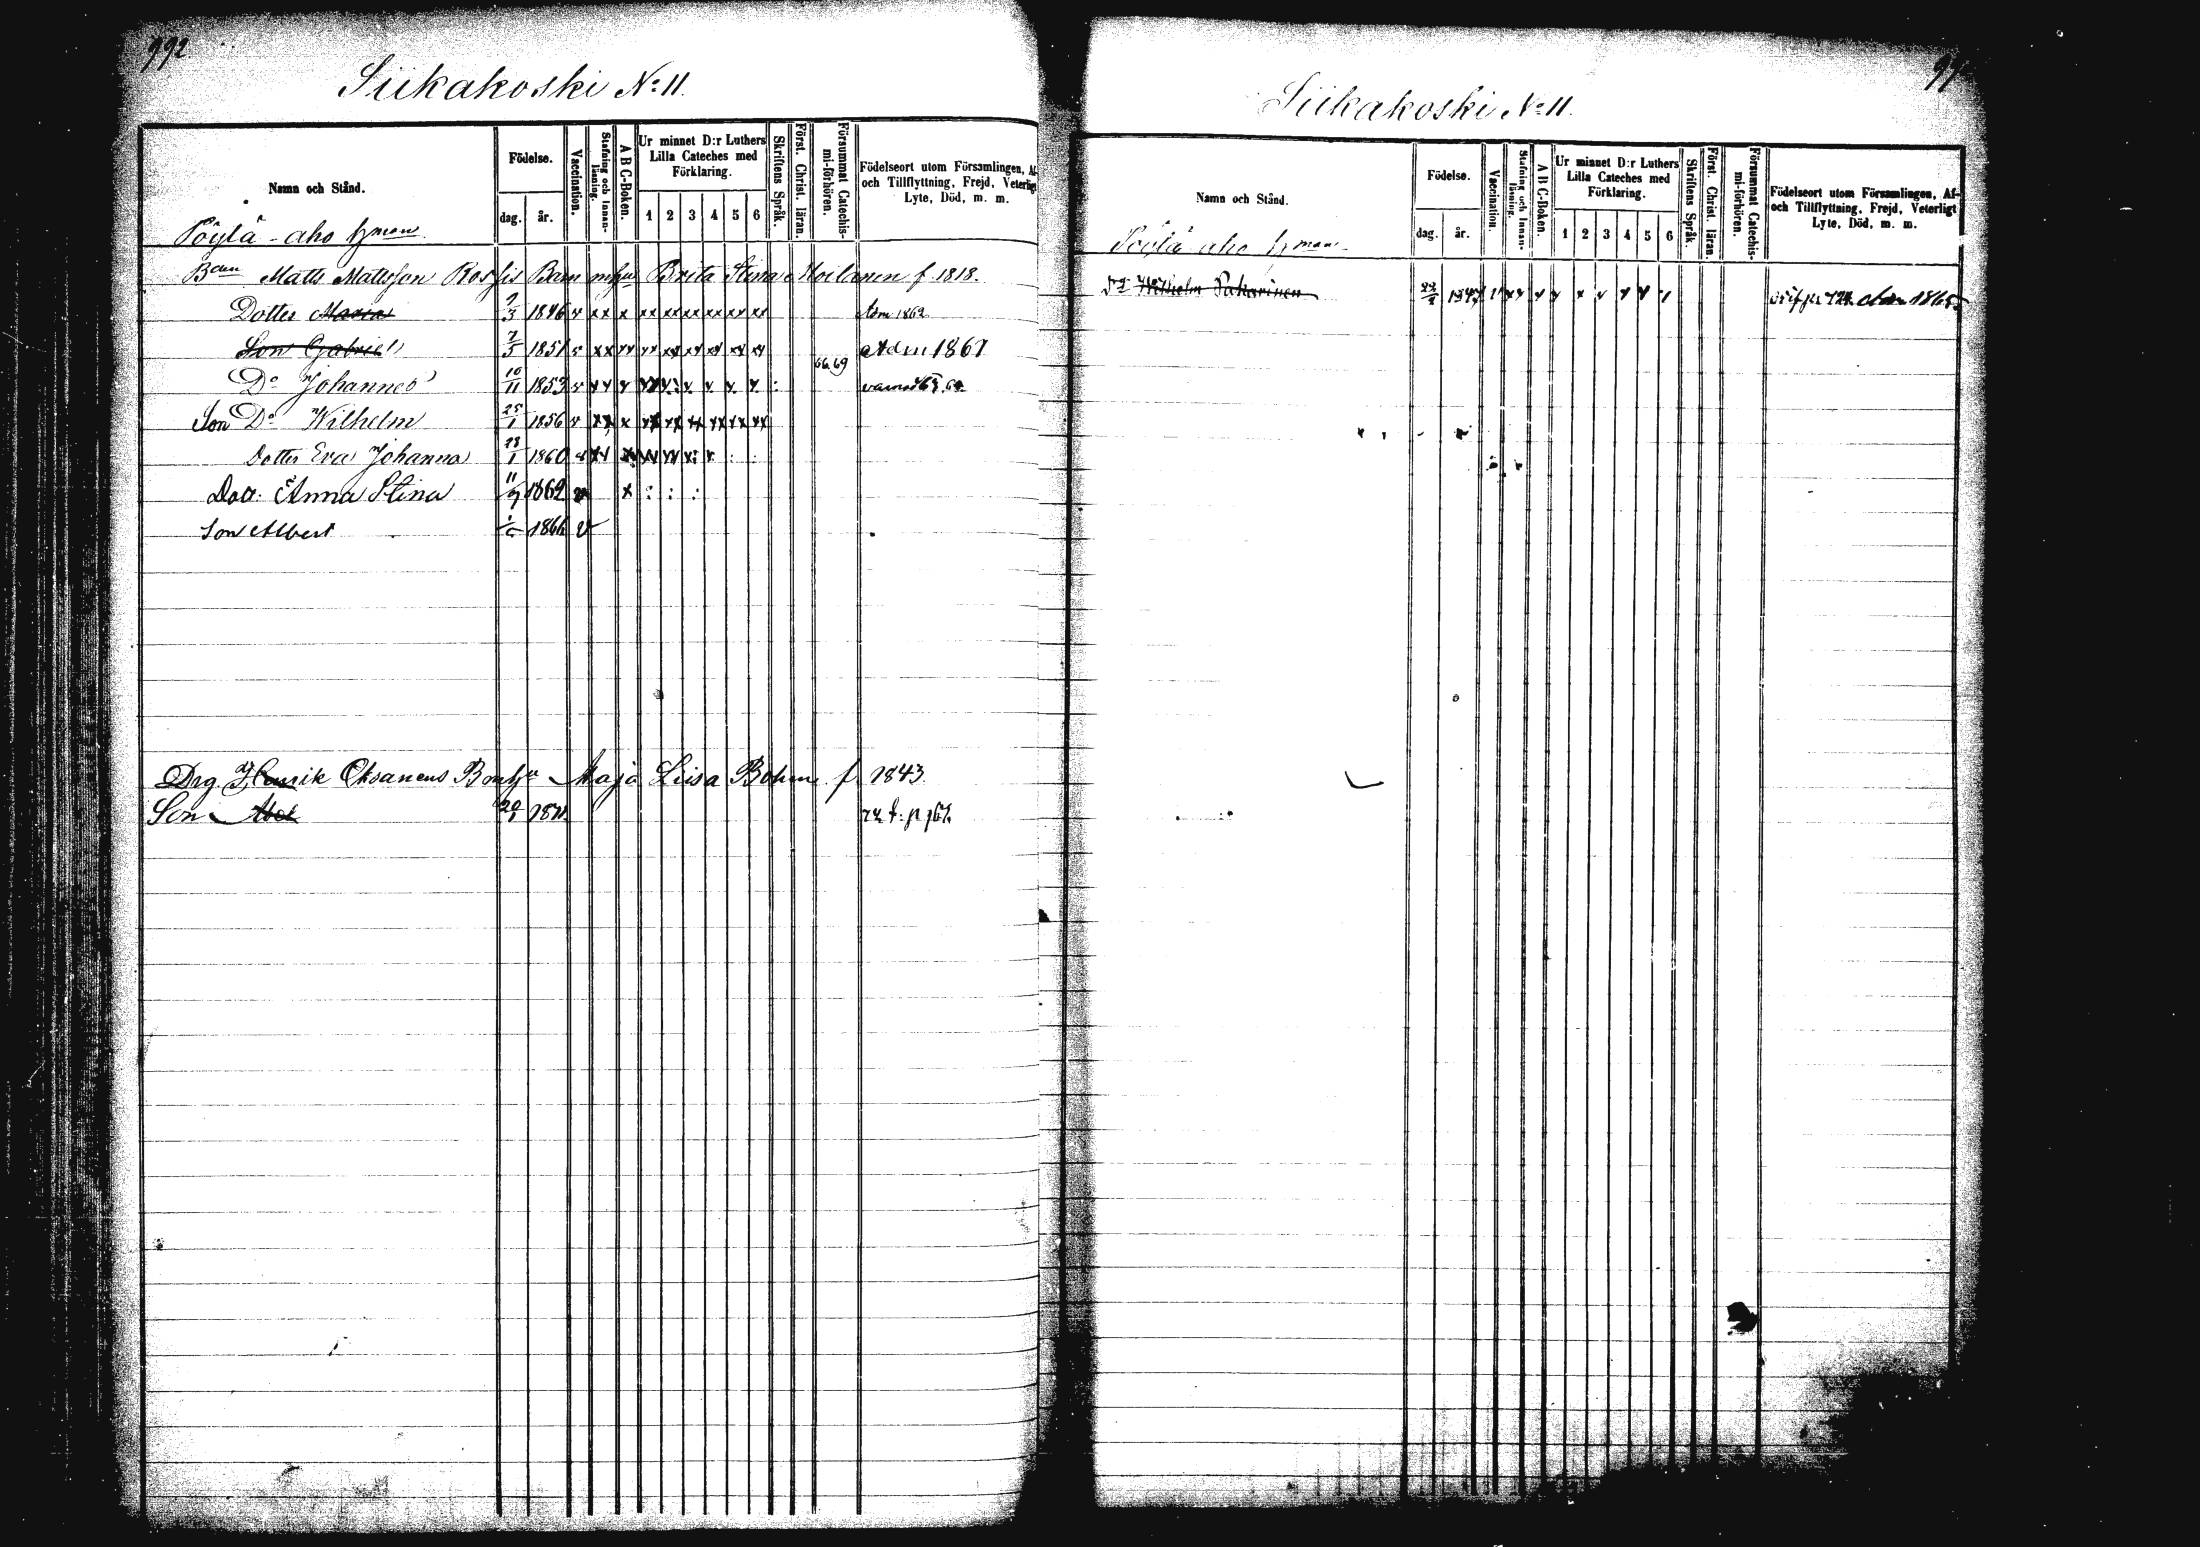 992
Siikakoski No 11.
Namn och Stånd.
Födelse.
dag. år.
Vaccination.
Stafning och Innan-läsning.
A B C-Boken.
Ur minnet D:r Luthers
Lilla Cateches med
Förklaring.
1 2 3 4 5 6
Skriftens Språk.
Först. Christ. läran.
Försummat Catechis-
mi-förhören.
Födelseort utom Församlingen, Af-
och Tillflyttning, Frejd, Veterligt
Lyte, Död, m. m.
Pöylä-aho
Bden Matts Mattsson Rossis Barn Brita Stina Moilanen f. 1818.
Dotter Maria 7/3 1846 v xx x xx xx xx xx xx xx Adm 1862
Son Gabriel 7/5 1851 v xx xx xx xx xx xx xx xx Adm 1867
Do Johannes 10/11 1853 v 66.69
Son Do Wilhelm 25/1 1856 v xx x xx xx xx xx xx xx
Dotter Eva Johanna 28/1 1860 v
Dott. Anna Stina 11/7 1862 v x : : :
Son Albert 1866 v
Drg Henrik Oksanens Maja Liisa Bohm f. 1843.
Son Abel 20/1 1871
Siikakoski No 11.
Namn och Stånd.
Födelse.
dag. år.
Vaccination.
Stafning och Innan-läsning.
A B C-Boken.
Ur minnet D:r Luthers
Lilla Cateches med
Förklaring.
1 2 3 4 5 6
Skriftens Språk.
Först. Christ. läran.
Försummat Catechis-
mi-förhören.
Födelseort utom Församlingen, Af-
och Tillflyttning, Frejd, Veterligt
Lyte, Död, m. m.
Pöylä aho
Wilhelm 1847